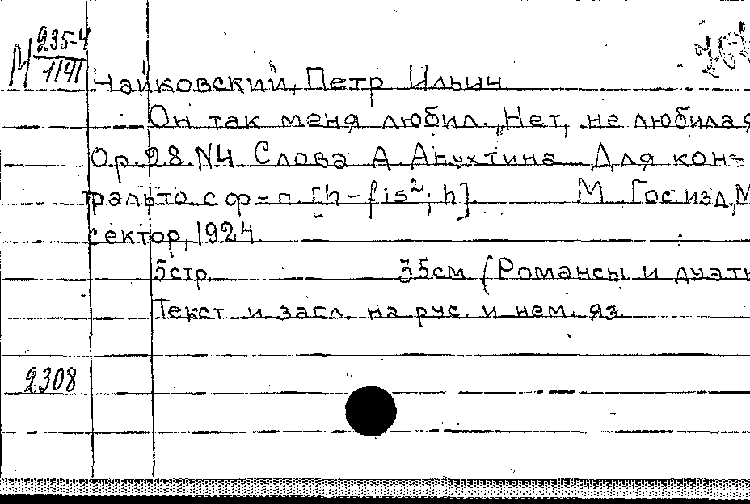 М 235-4
1191
Чайковский, Петр Ильич
Он так меня любил. „Нет, не любила я
Op. 28. N4 Слова А. Апухтина Для кон=
тральто с ф-п. [h-fis²; h]. М. Госизд, М
сектор, 1924.
5стр. 35см (Романсы и дуэты
Текст и загл. на рус. и нем. яз.
2308